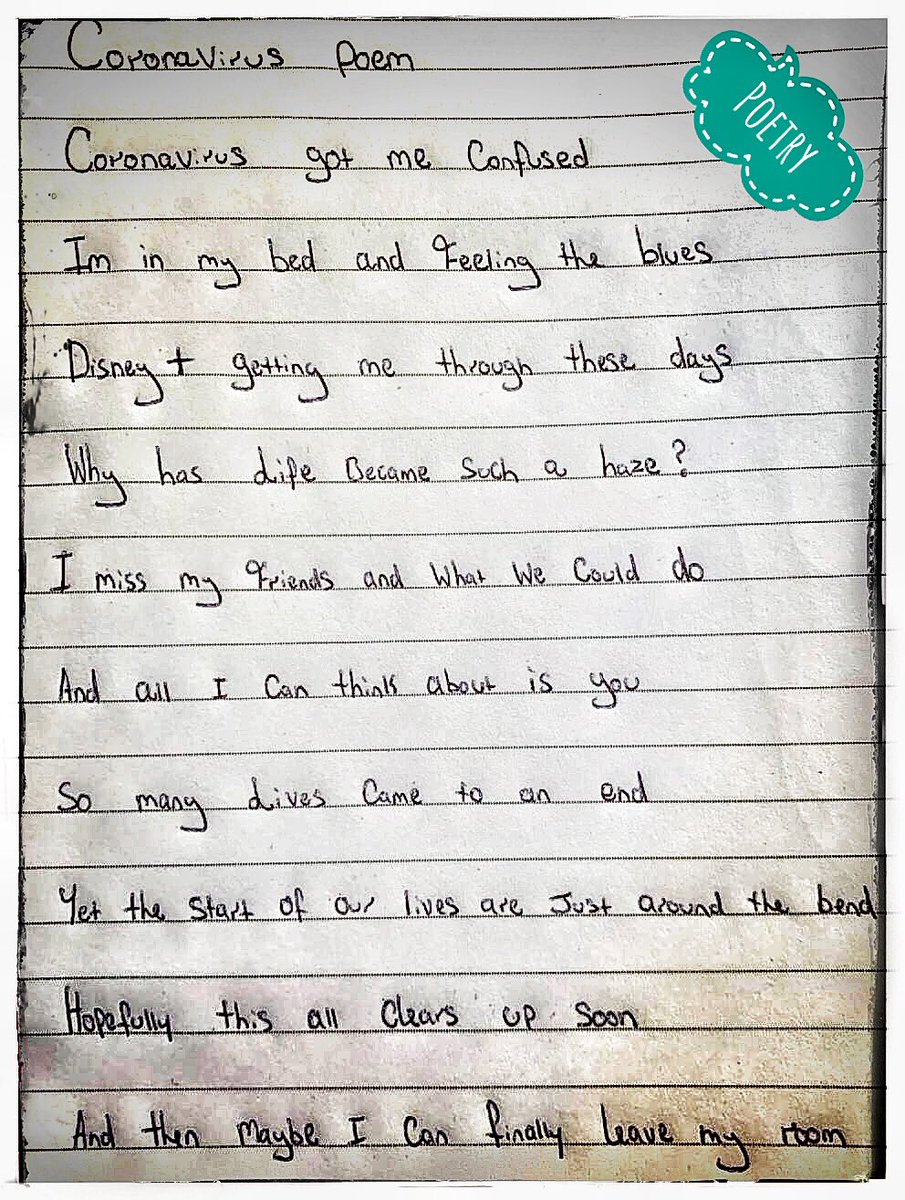 Coronavirus Poem
POETRY
Coronavirus got me Confused
Im in my bed and Feeling the blues
Disney + getting me through these days
Why has Life Became Such a haze?
I miss my Friends and What We Could do
And all I Can think about is you
So many Lives Came to an end
Yet the Start of our lives are Just around the bend
Hopefully this all Clears up Soon
And then Maybe I Can finally leave my room